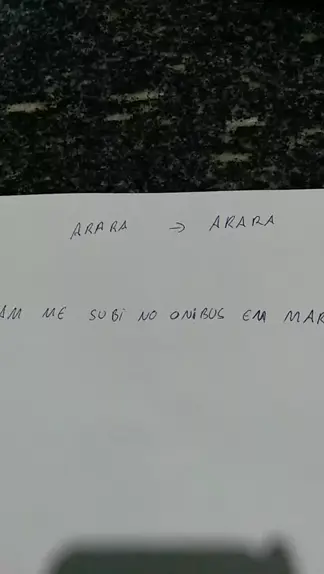 ARARA → ARARA
AM ME SUBI NO ONIBUS EM MAR